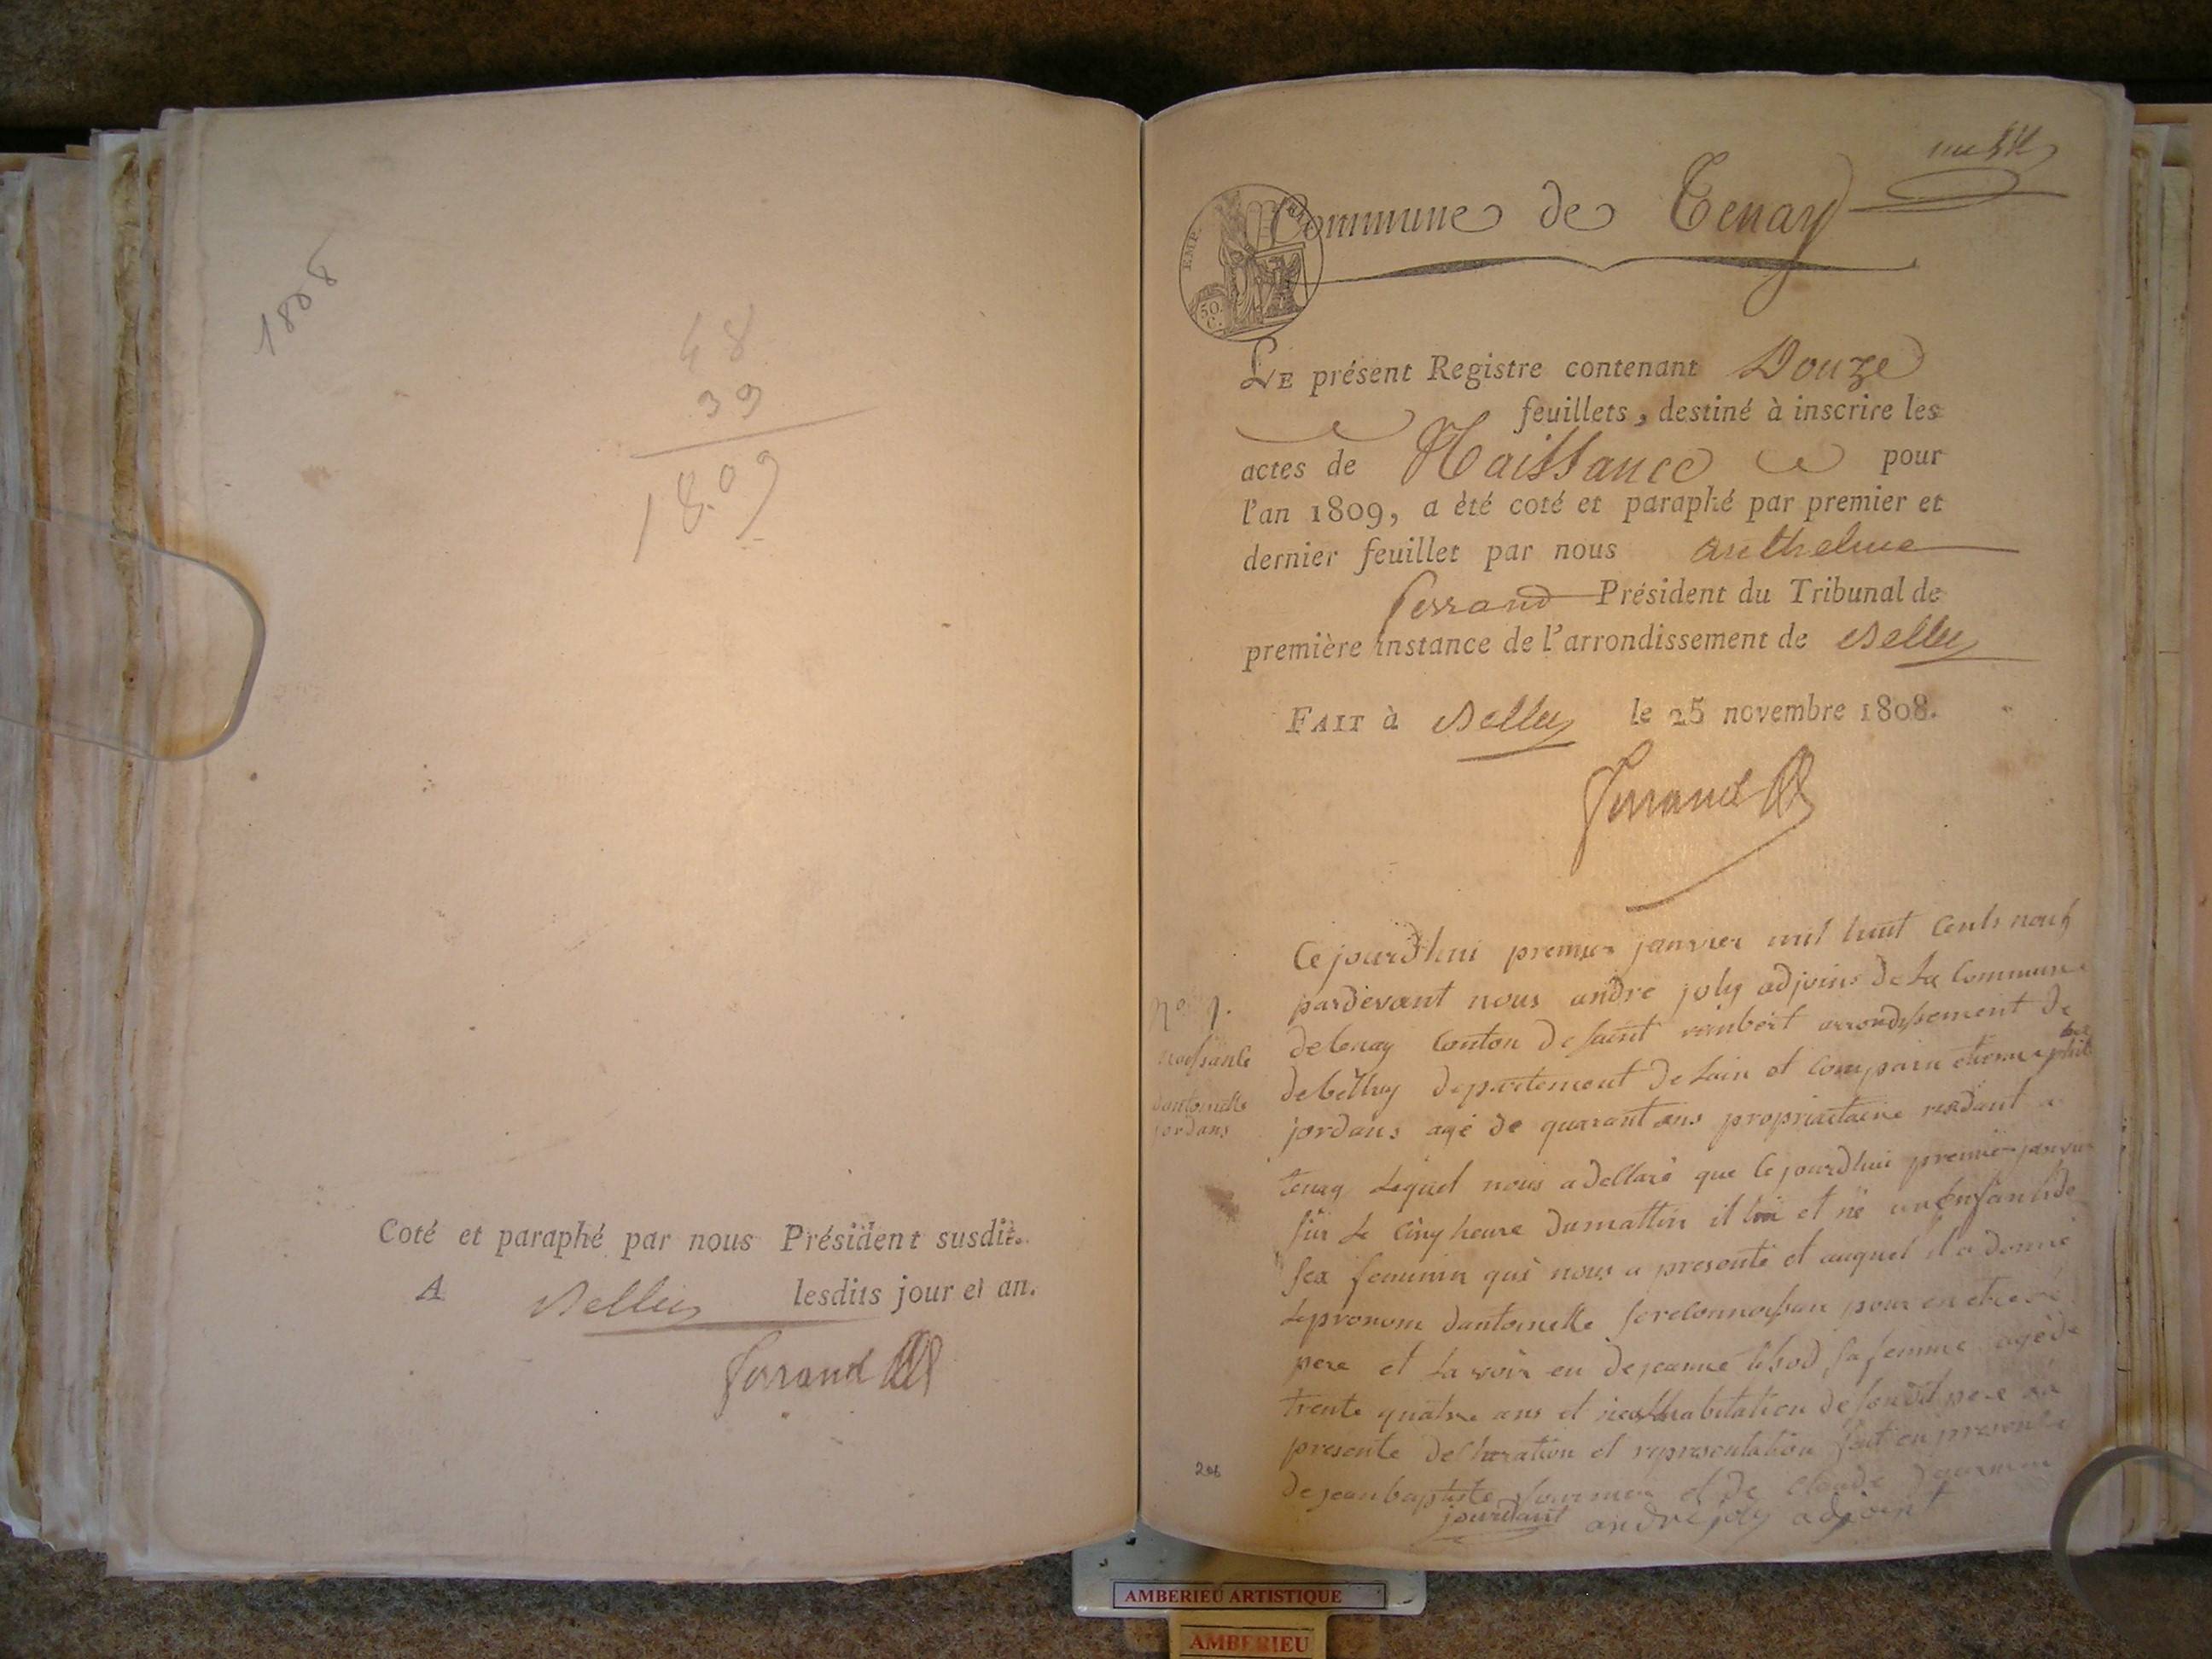 1808
48
39
1809
Coté et paraphé par nous Président susdit.
A Belley lesdits jour et an.
Ferrand
Commune de Tenay
EMP. FRAN
50
C.
LE présent Registre contenant Douze
feuillets, destiné à inscrire les
actes de Naissance pour
l'an 1809, a été coté et paraphé par premier et
dernier feuillet par nous anthelme
ferrand Président du Tribunal de
première instance de l'arrondissement de Belley
FAIT à Belley le 25 novembre 1808.
Ferrand
No 1.
naissance
dantoinette
jordans
Ce jourdhui premier janvier mil huit cents neuf
pardevant nous andre joly adjoint de la Commune
de tenay Canton de saint rambert arrondissement de
de belley departement de lain et comparu etienne
jordans agé de quarant ans propriaetaire residant a
tenay lequel nous a dellaré que cejourdhui premier janvier
sur le cinq heure du mattin il et né un enfant de
sex feminin qui nous a presenté et auquel il a donné
le pronom dantoinette se reconnoissan pour en etre le
pere et lavoir eu de jeanne sa femme agé de
trente quatre ans et habitation de soudit pere la
presente declaration et representation fait en presence
de jean baptiste et de claude
jourdant andre joly adjoint
206
AMBERIEU ARTISTIQUE
AMBERIEU